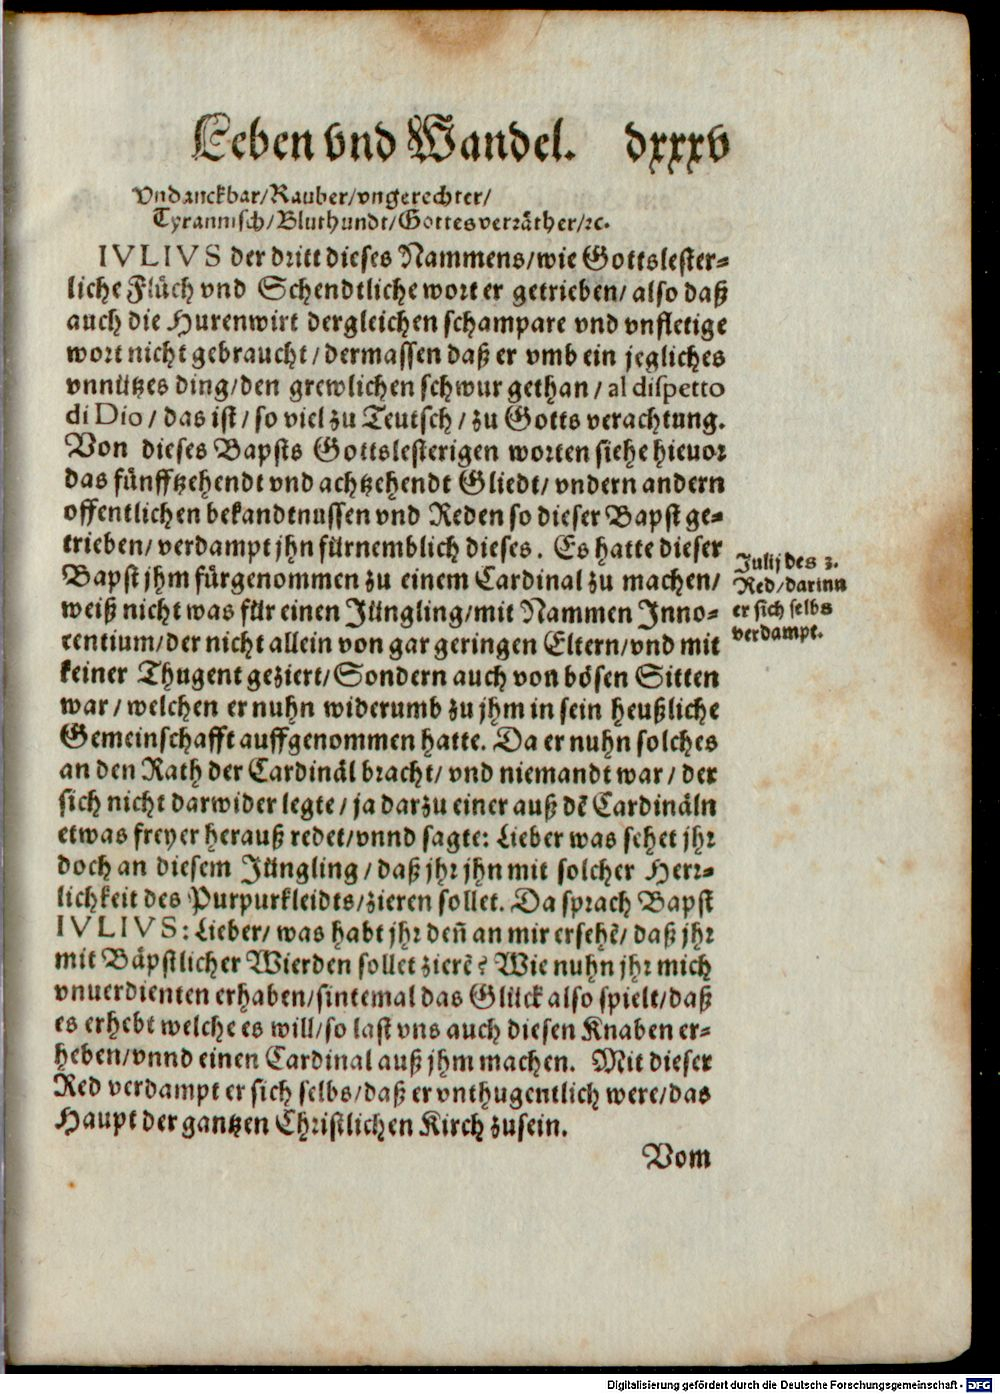 Leben vnd Wandel. dxxxv
Vndanckbar/Rauber/vngerechter/
Tyrannisch/Bluthundt/Gottesverräther/ꝛc.
IVLIVS der dritt dieses Nammens/wie Gottslester-
liche Flüch vnd Schendtliche wort er getrieben/ also daß
auch die Hurenwirt dergleichen schampare vnd vnfletige
wort nicht gebraucht/dermassen daß er vmb ein jegliches
vnnützes ding/den grewlichen schwur gethan/al dispetto
di Dio/das ist/so viel zu Teutsch/zu Gotts verachtung.
Von dieses Bapsts Gottslesterigen worten siehe hieuor
das fünfftzehendt vnd achtzehendt Gliedt/ vndern andern
offentlichen bekandtnussen vnd Reden so dieser Bapst ge-
trieben/verdampt jhn fürnemblich dieses. Es hatte dieser
Bapst jhm fürgenommen zu einem Cardinal zu machen/
weiß nicht was für einen Jüngling/mit Nammen Inno-
centium/der nicht allein von gar geringen Eltern/vnd mit
keiner Thugent geziert/Sondern auch von bösen Sitten
war/welchen er nuhn widerumb zu jhm in sein heußliche
Gemeinschafft auffgenommen hatte. Da er nuhn solches
an den Rath der Cardinäl bracht/vnd niemandt war/der
sich nicht darwider legte/ja darzu einer auß dē Cardinäln
etwas freyer herauß redet/vnnd sagte: Lieber was sehet jhr
doch an diesem Jüngling/daß jhr jhn mit solcher Herr-
lichkeit des Purpurkleidts/zieren sollet. Da sprach Bapst
IVLIVS: Lieber/was habt jhr deñ an mir ersehē/daß jhr
mit Bäpstlicher Wierden sollet zierē? Wie nuhn jhr mich
vnuerdienten erhaben/sintemal das Glück also spielt/daß
es erhebt welche es will/so last vns auch diesen Knaben er-
heben/vnnd einen Cardinal auß jhm machen. Mit dieser
Red verdampt er sich selbs/daß er vnthugentlich were/das
Haupt der gantzen Christlichen Kirch zusein.
Vom
Julij des 3.
Red/darinn
er sich selbs
verdampt.
Digitalisierung gefördert durch die Deutsche Forschungsgemeinschaft - DFG